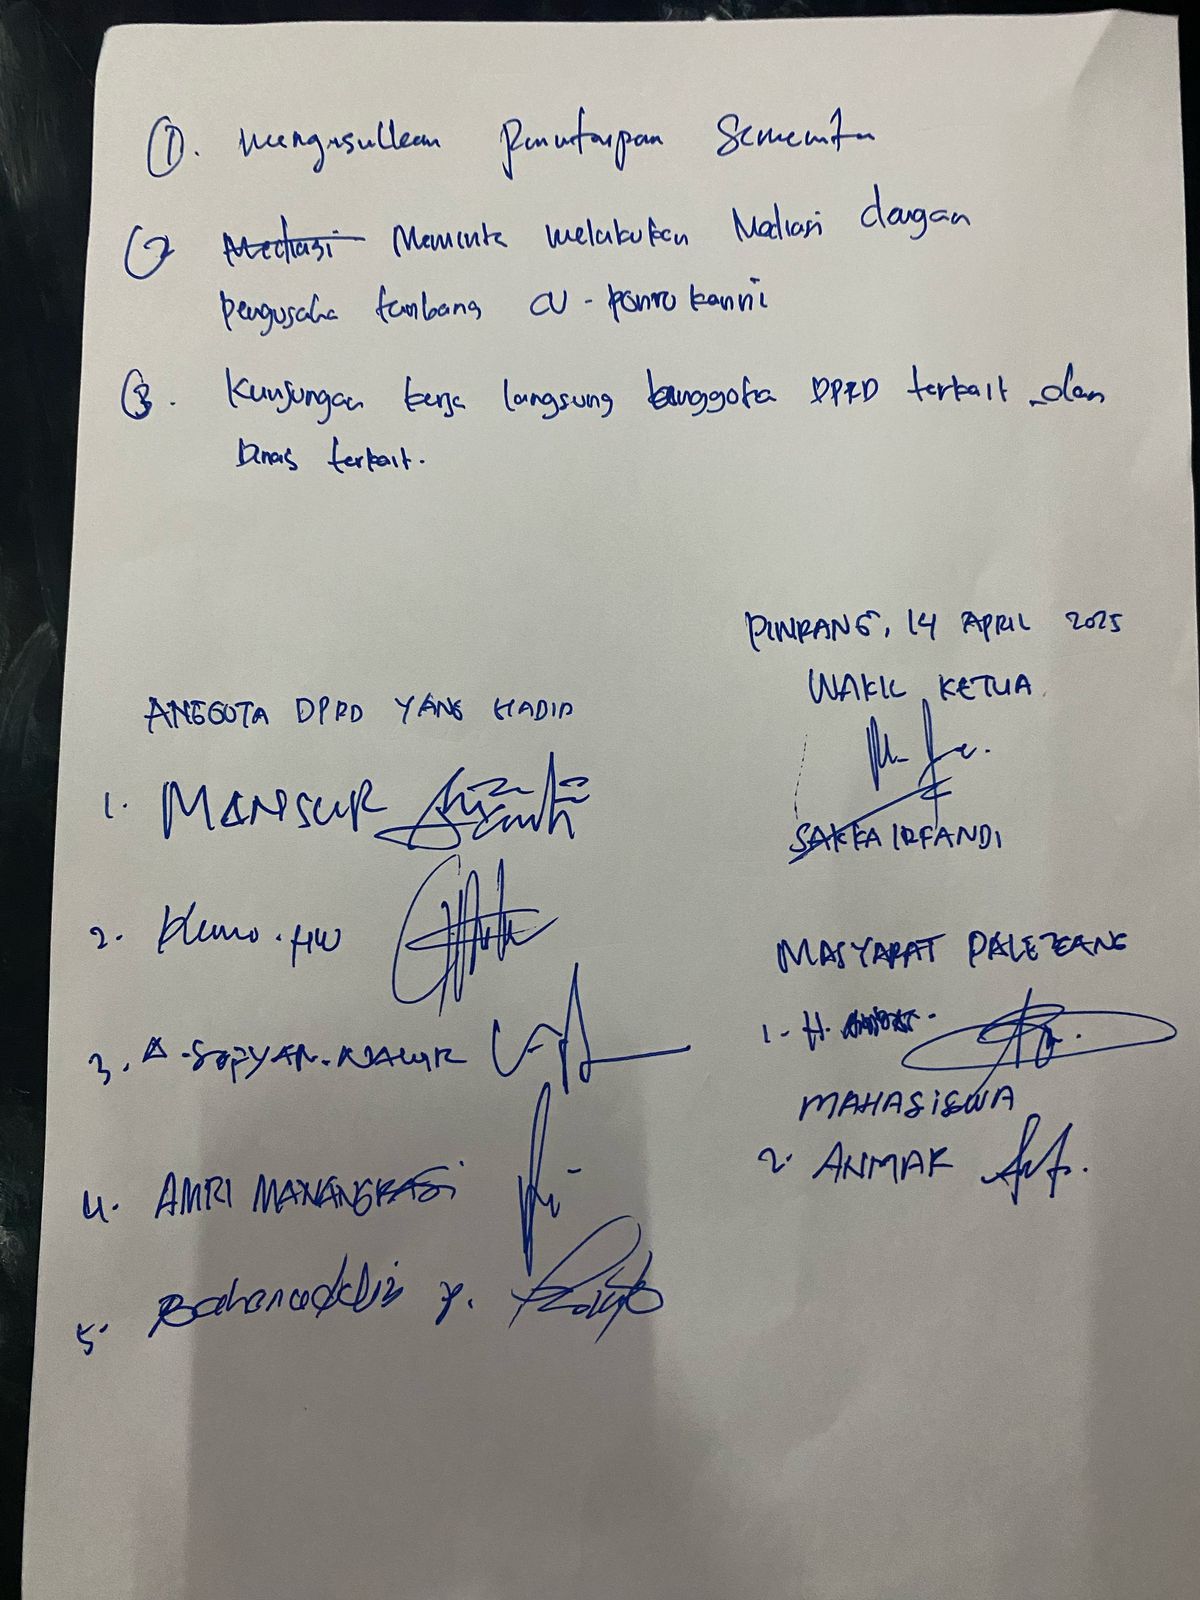 1. Mengusulkan Penutupan Sementa
2 Mediasi Meminta melakukan Mediasi dengan
pengusaha tambang CV - ponro kanni
3. Kunjungan kerja langsung anggota DPRD terkait dan
Dinas terkait.
PINRANG, 14 APRIL 2025
WAKIL KETUA
SAKKA IRFANDI
ANGGOTA DPRD YANG HADIR
1. MANSUR
2. HW
3. A. SOFYAN. NAWIR
4. AMRI MANANGKASI
5.
MASYARAT PALETEANG
1. H.
MAHASISWA
2. ANMAK